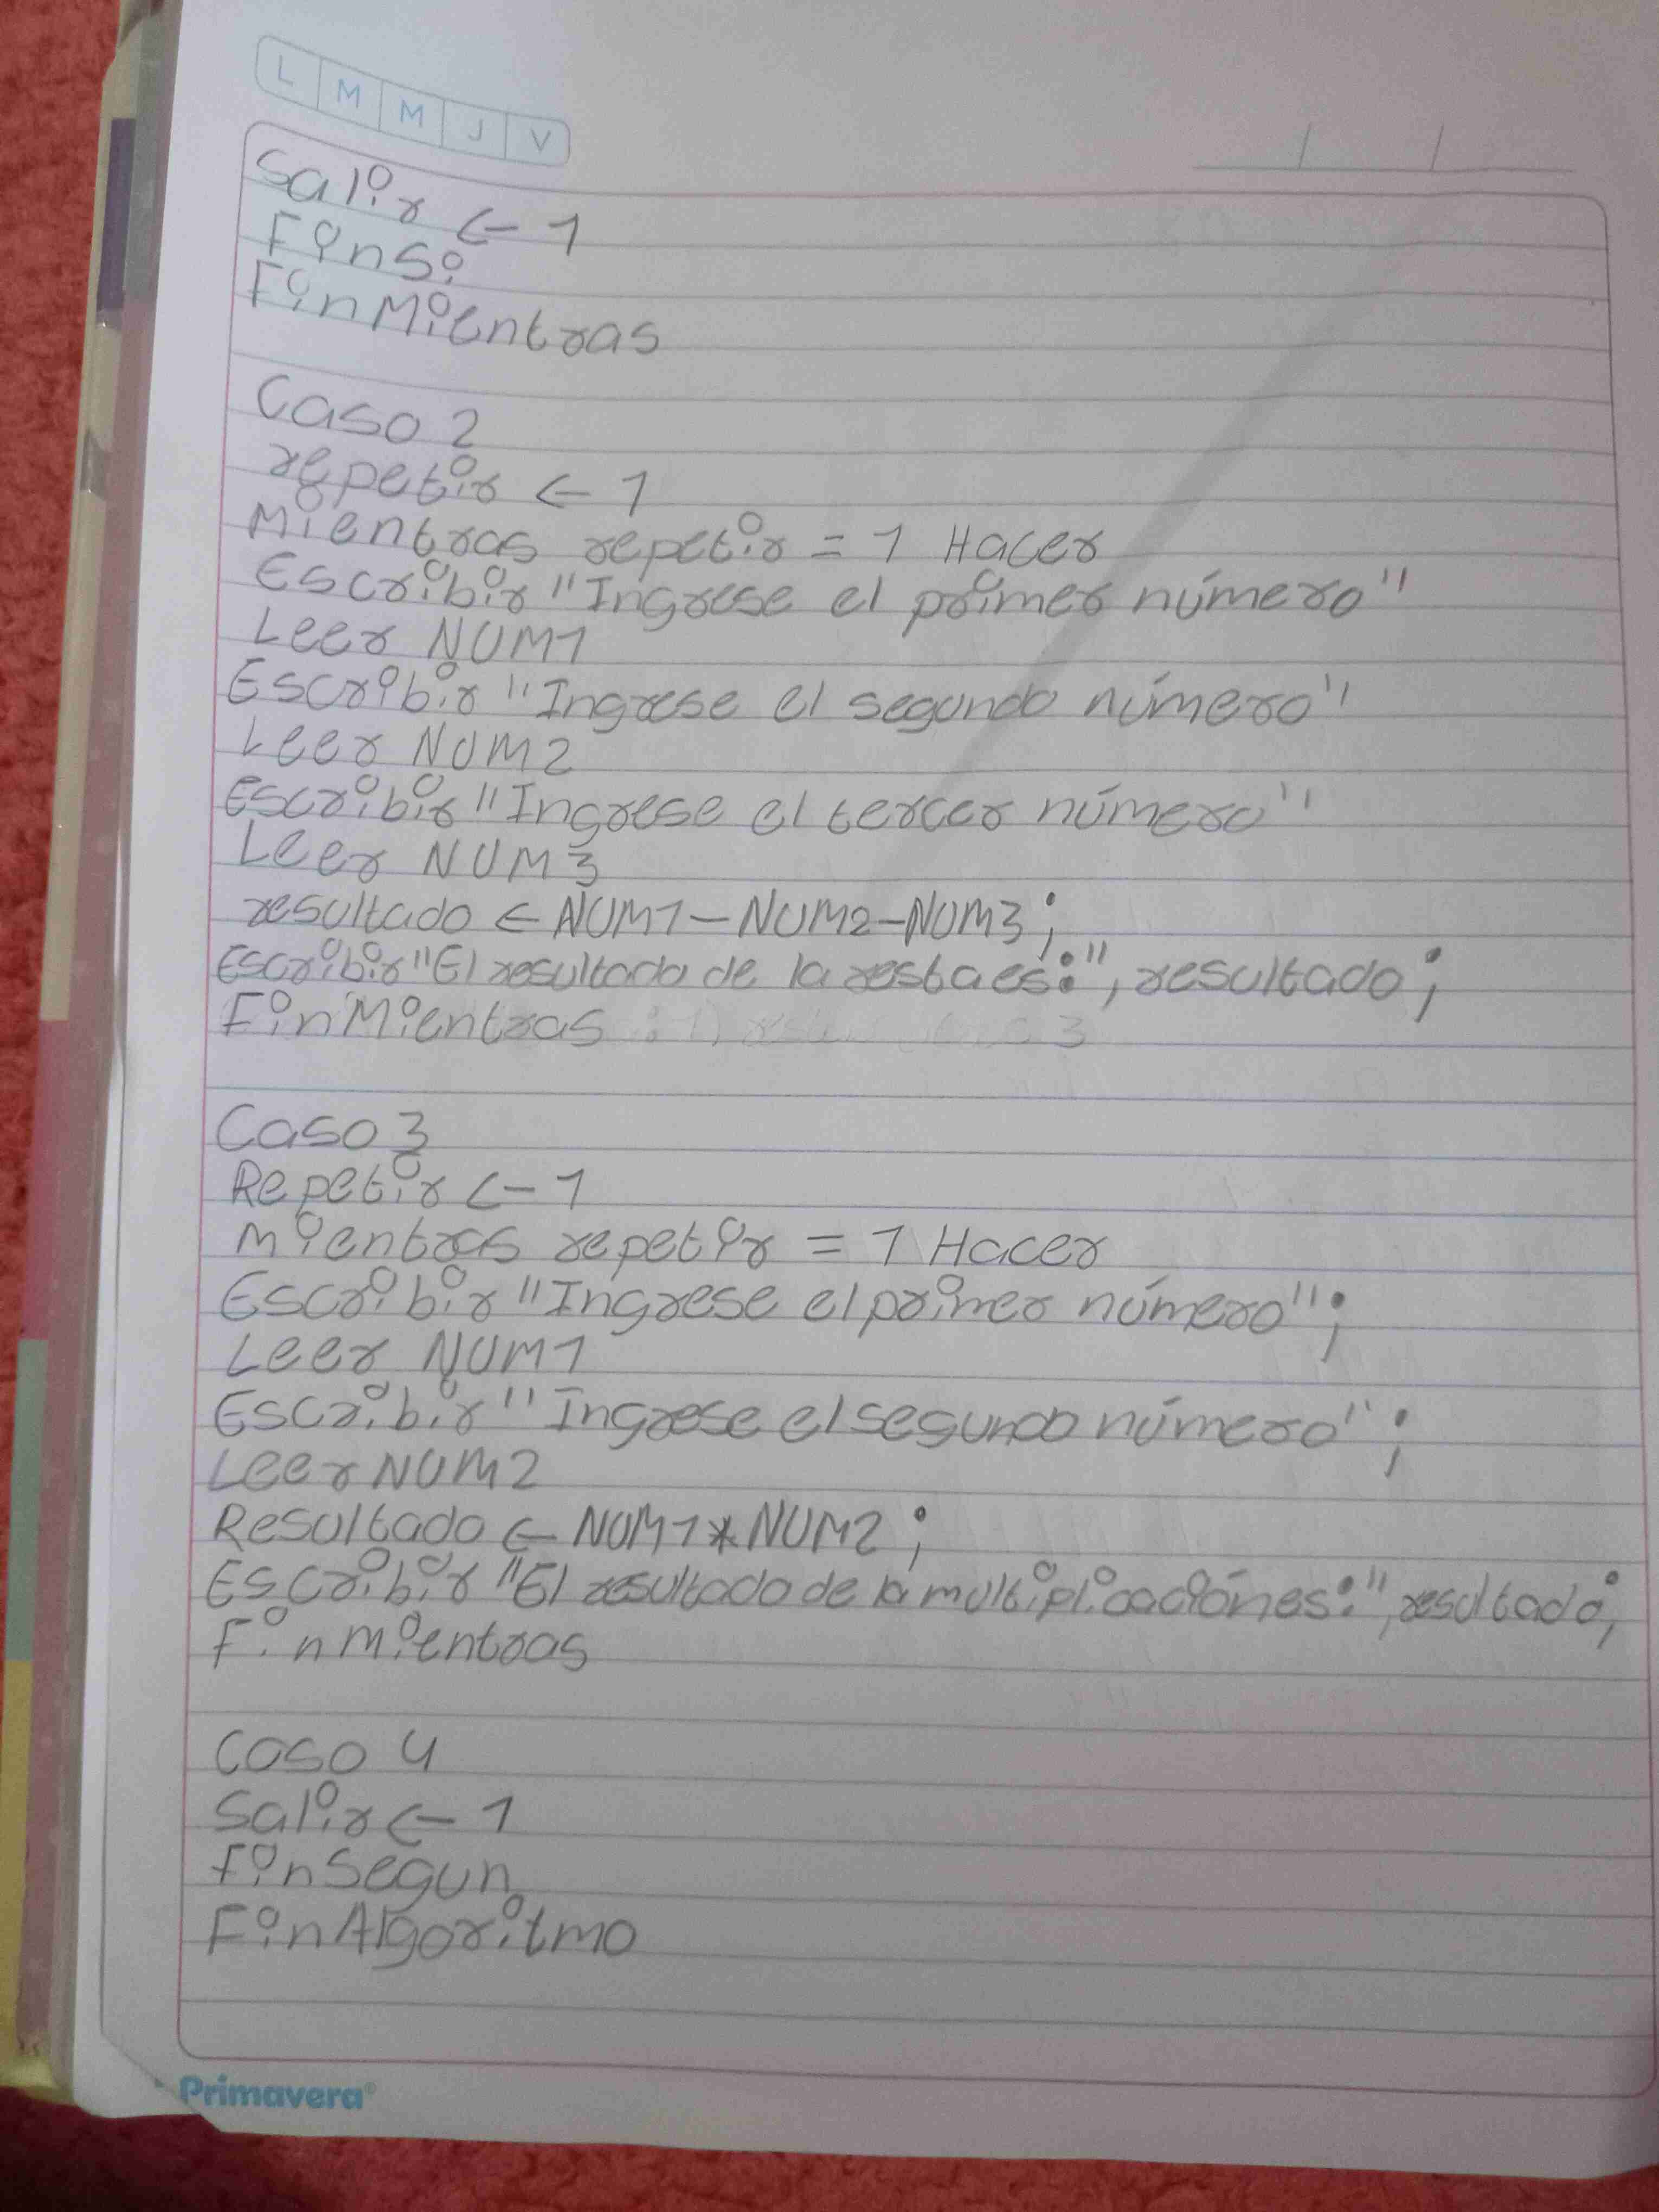 L M M J V
Salir ← 1
FinSi
FinMientras
Caso 2
repetir ← 1
Mientras repetir = 1 Hacer
Escribir "Ingrese el primer número"
Leer NUM1
Escribir "Ingrese el segundo número"
Leer NUM2
Escribir "Ingrese el tercer número"
Leer NUM3
resultado ← NUM1-NUM2-NUM3;
Escribir "El resultado de la resta es:", resultado;
FinMientras
Caso 3
Repetir ← 1
Mientras repetir = 1 Hacer
Escribir "Ingrese el primer número";
Leer NUM1
Escribir "Ingrese el segundo número";
Leer NUM2
Resultado ← NUM1*NUM2;
Escribir "El resultado de la multiplicaciónes:", resultado;
FinMientras
Caso 4
Salir ← 1
FinSegun
FinAlgoritmo
Primavera®